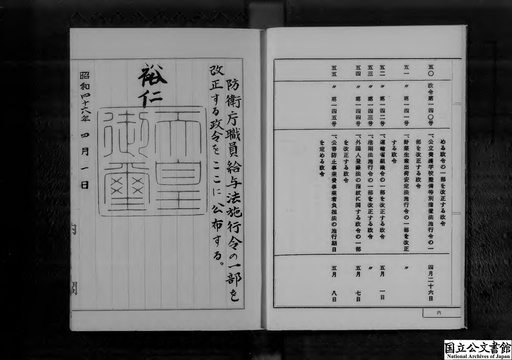 める政令の一部を改正する政令
五〇 政令第一四〇号 「公立養護学校整備特別措置法施行令の一
部を改正する政令 四月二十六日
五一 〃 第一四一号 「野菜生産出荷安定法施行令の一部を改正
する政令 〃
五二 〃 第一四二号 「運輸省組織令の一部を改正する政令 五月 一日
五三 〃 第一四三号 「港則法施行令の一部を改正する政令 〃
五四 〃 第一四四号 「外国人登録法の指紋に関する政令の一部
を改正する政令 五月 七日
五五 〃 第一四五号 「公害防止事業費事業者負担法の施行期日
を定める政令 五月 八日
六
防衛庁職員給与法施行令の一部を
改正する政令をここに公布する。
裕仁
天皇
御璽
昭和四十六年 四月 一日
内閣
国立公文書館
National Archives of Japan